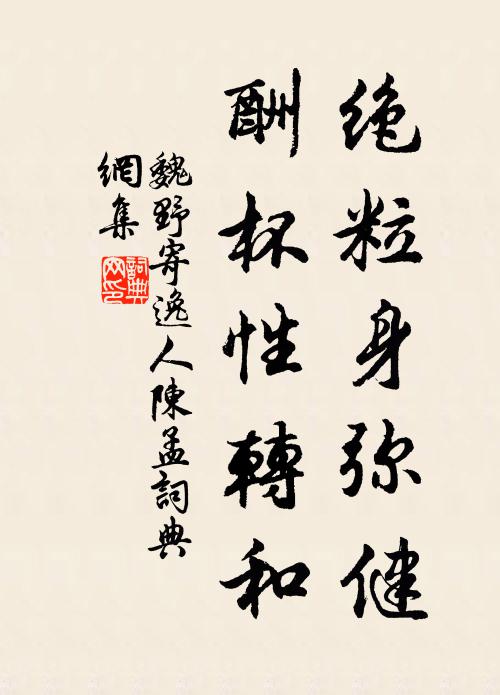 绝粒身弥健
酬杯性轉和
魏野寄逸人陳孟詞典
網集
詞典
网印